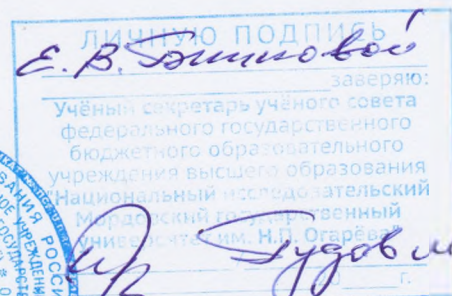 ЛИЧНУЮ ПОДПИСЬ
Е. В.
заверяю:
Учёный секретарь учёного совета
федерального государственного
бюджетного образовательного
учреждения высшего образования
"Национальный исследовательский
Мордовский государственный
университет им. Н.П. Огарёва"
Гудов
г.